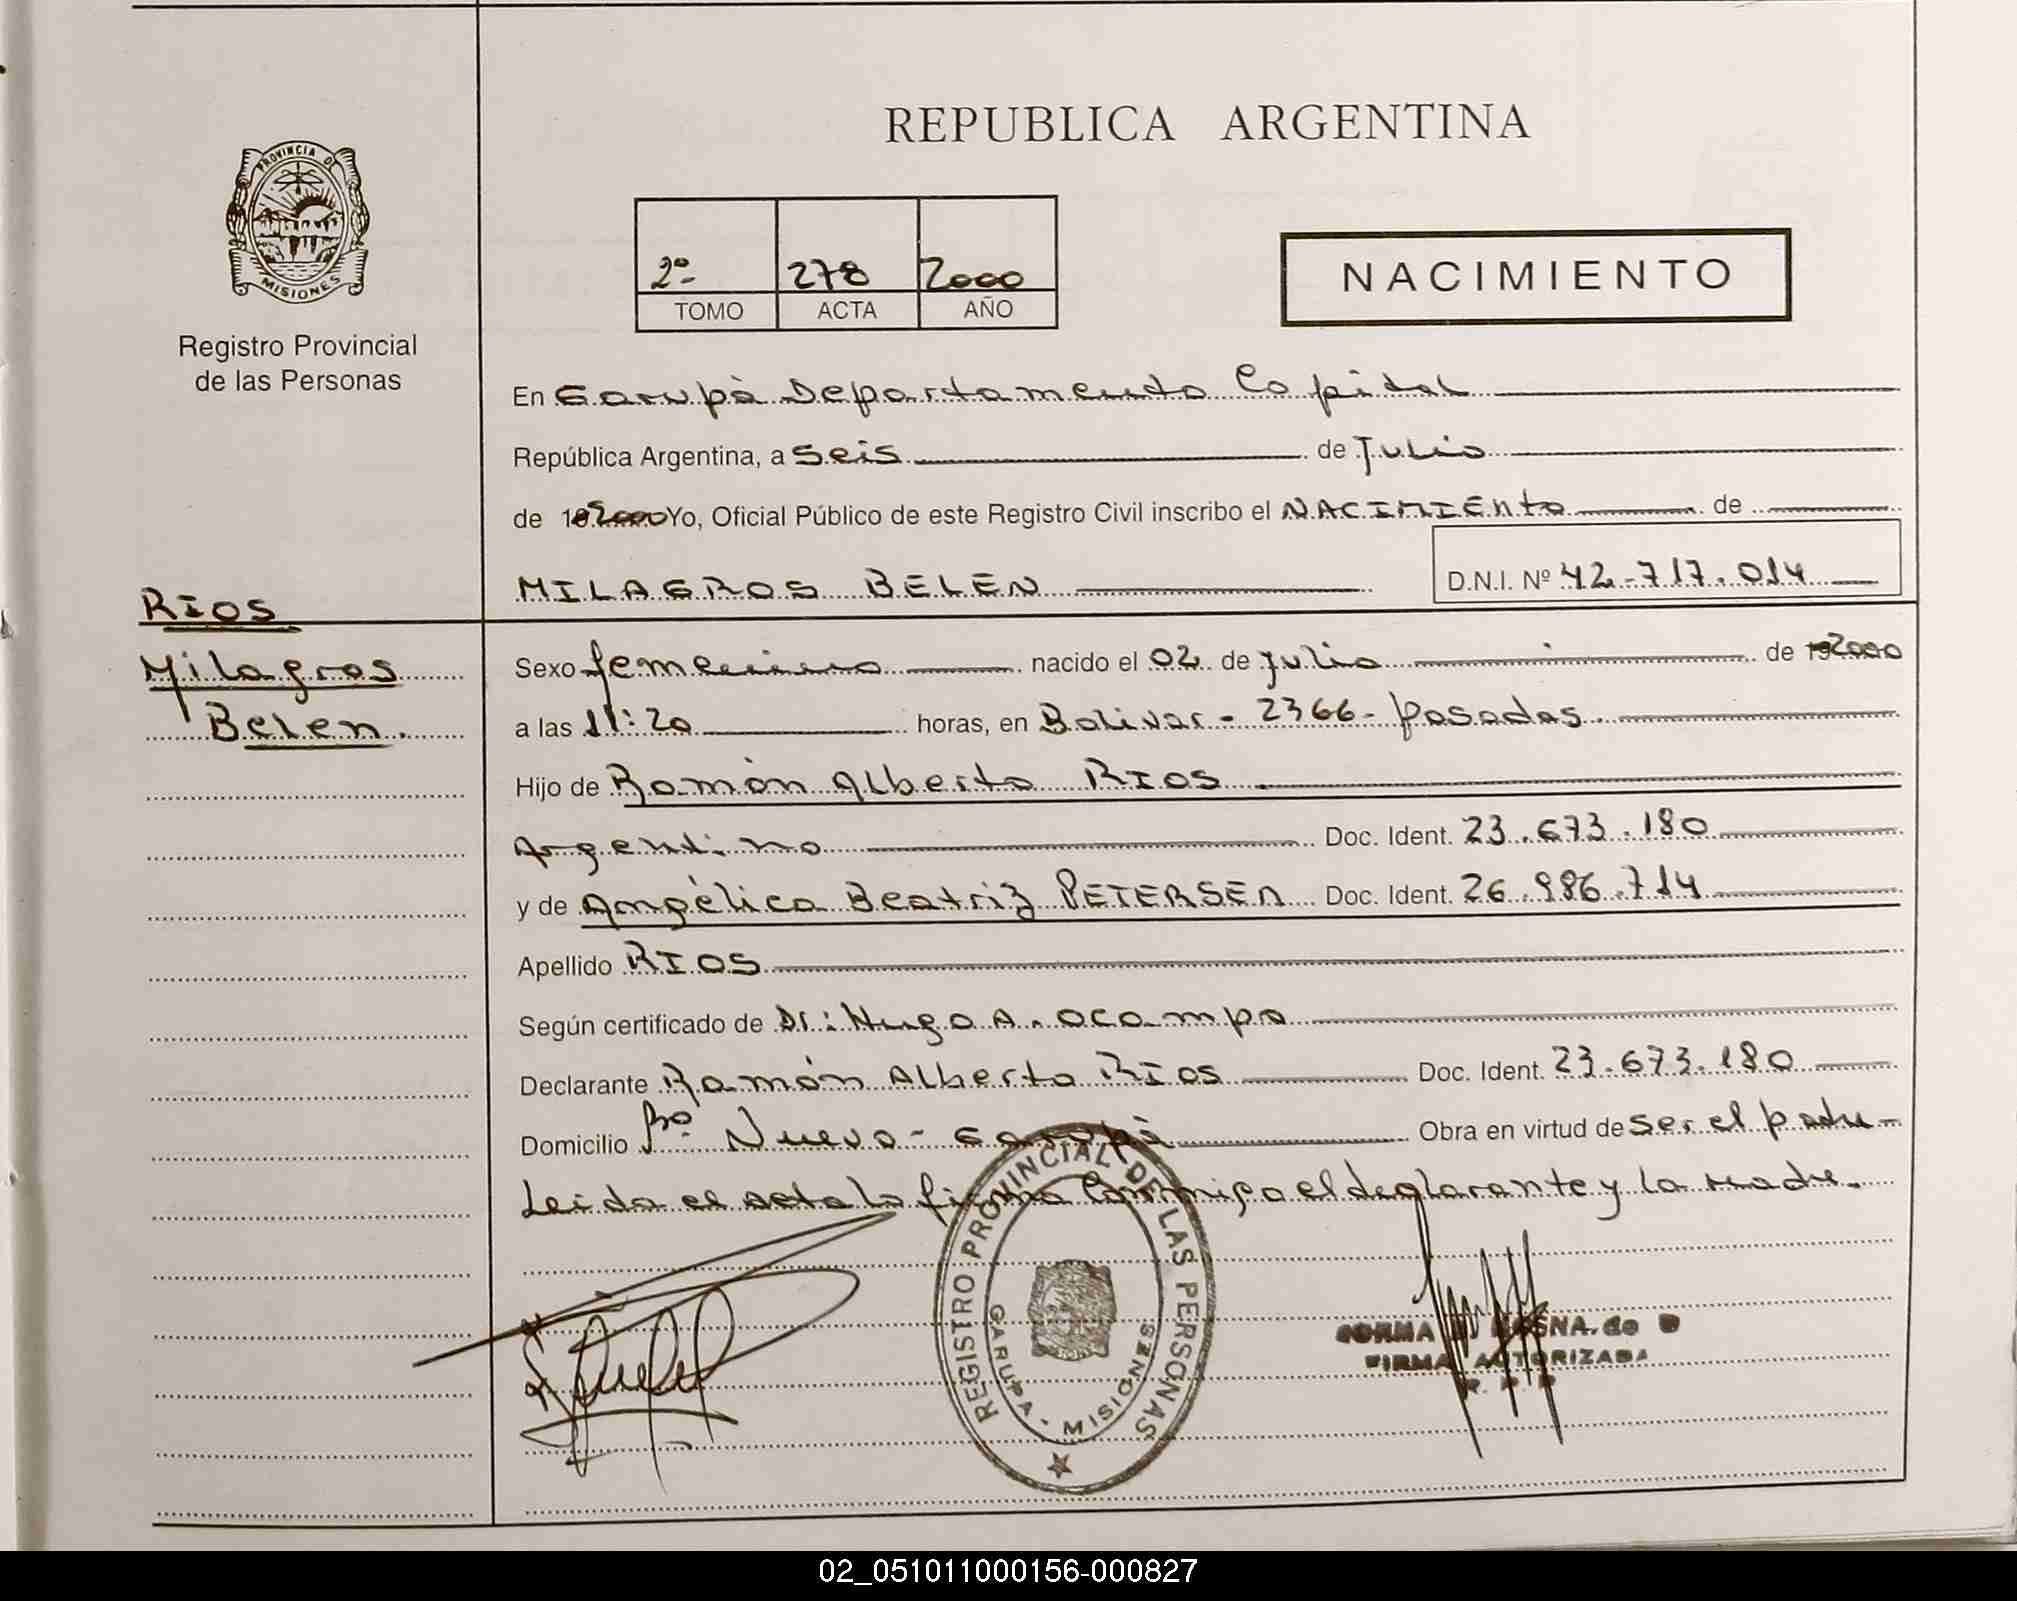 REPUBLICA ARGENTINA
PROVINCIA DE
MISIONES
Registro Provincial
de las Personas
2º 278 2000
TOMO ACTA AÑO
NACIMIENTO
En Garupà Departamento Capital
República Argentina, a Seis de Julio
de 2000 Yo, Oficial Público de este Registro Civil inscribo el NACIMIENTO de
MILAGROS BELEN D.N.I. Nº 42-717.014
RIOS
Milagros
Belen.
Sexo femenino nacido el 02 de Julio de 2000
a las 11:20 horas, en Bolivar - 2366 - Posadas.
Hijo de Ramón Alberto RIOS
Argentino Doc. Ident. 23.673.180
y de Angélica Beatriz PETERSEN Doc. Ident. 26.986.714
Apellido RIOS
Según certificado de Dr: Hugo A. Ocampo
Declarante Ramón Alberto RIOS Doc. Ident. 23.673.180
Domicilio Bº Nuevo - Garupà Obra en virtud de ser el padre -
Leida el acta la firma Conmigo el declarante y la madre.
REGISTRO PROVINCIAL DE LAS PERSONAS
GARUPA - MISIONES
FIRMA AUTORIZADA
02_051011000156-000827